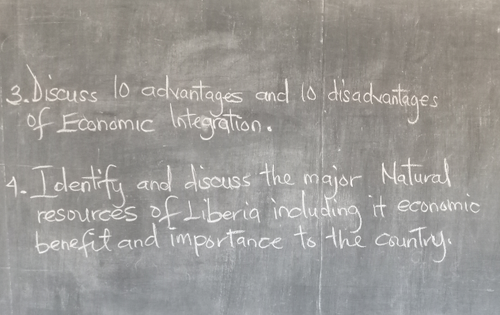 3. Discuss 10 advantages and 10 disadvantages
of Economic Integration.
4. Identify and discuss the major Natural
resources of Liberia including it economic
benefit and importance to the country.